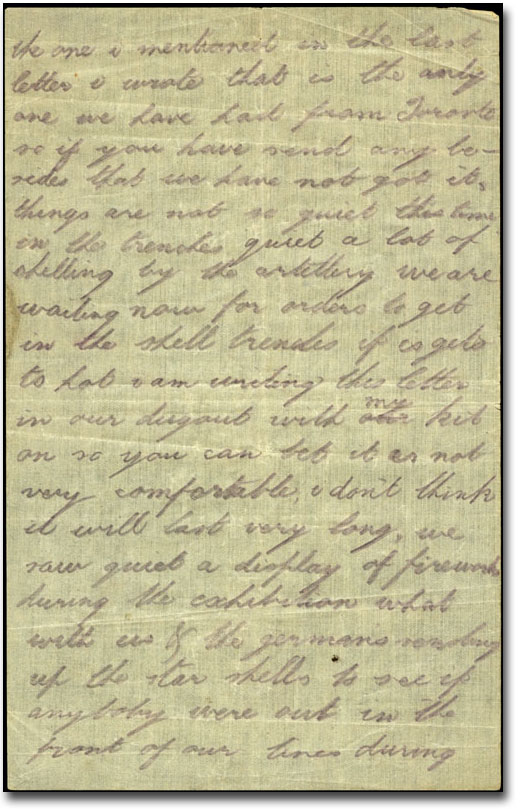 the one i mentioned in the last
letter i wrote that is the only
one we have had from Toronto
so if you have send any be-
sides that we have not got it,
things are not so quiet this time
in the trenches quiet a lot of
shelling by the artillery we are
waiting now for orders to get
in the shell trenches if is gets
to hot i am writing this letter
in our dugout with my kit
on so you can bet it is not
very comfortable, i don't think
it will last very long, we
saw quiet a display of firework
during the exhibition what
with us & the germans sending
up the star shells to see if
anyboby were out in the
front of our lines during